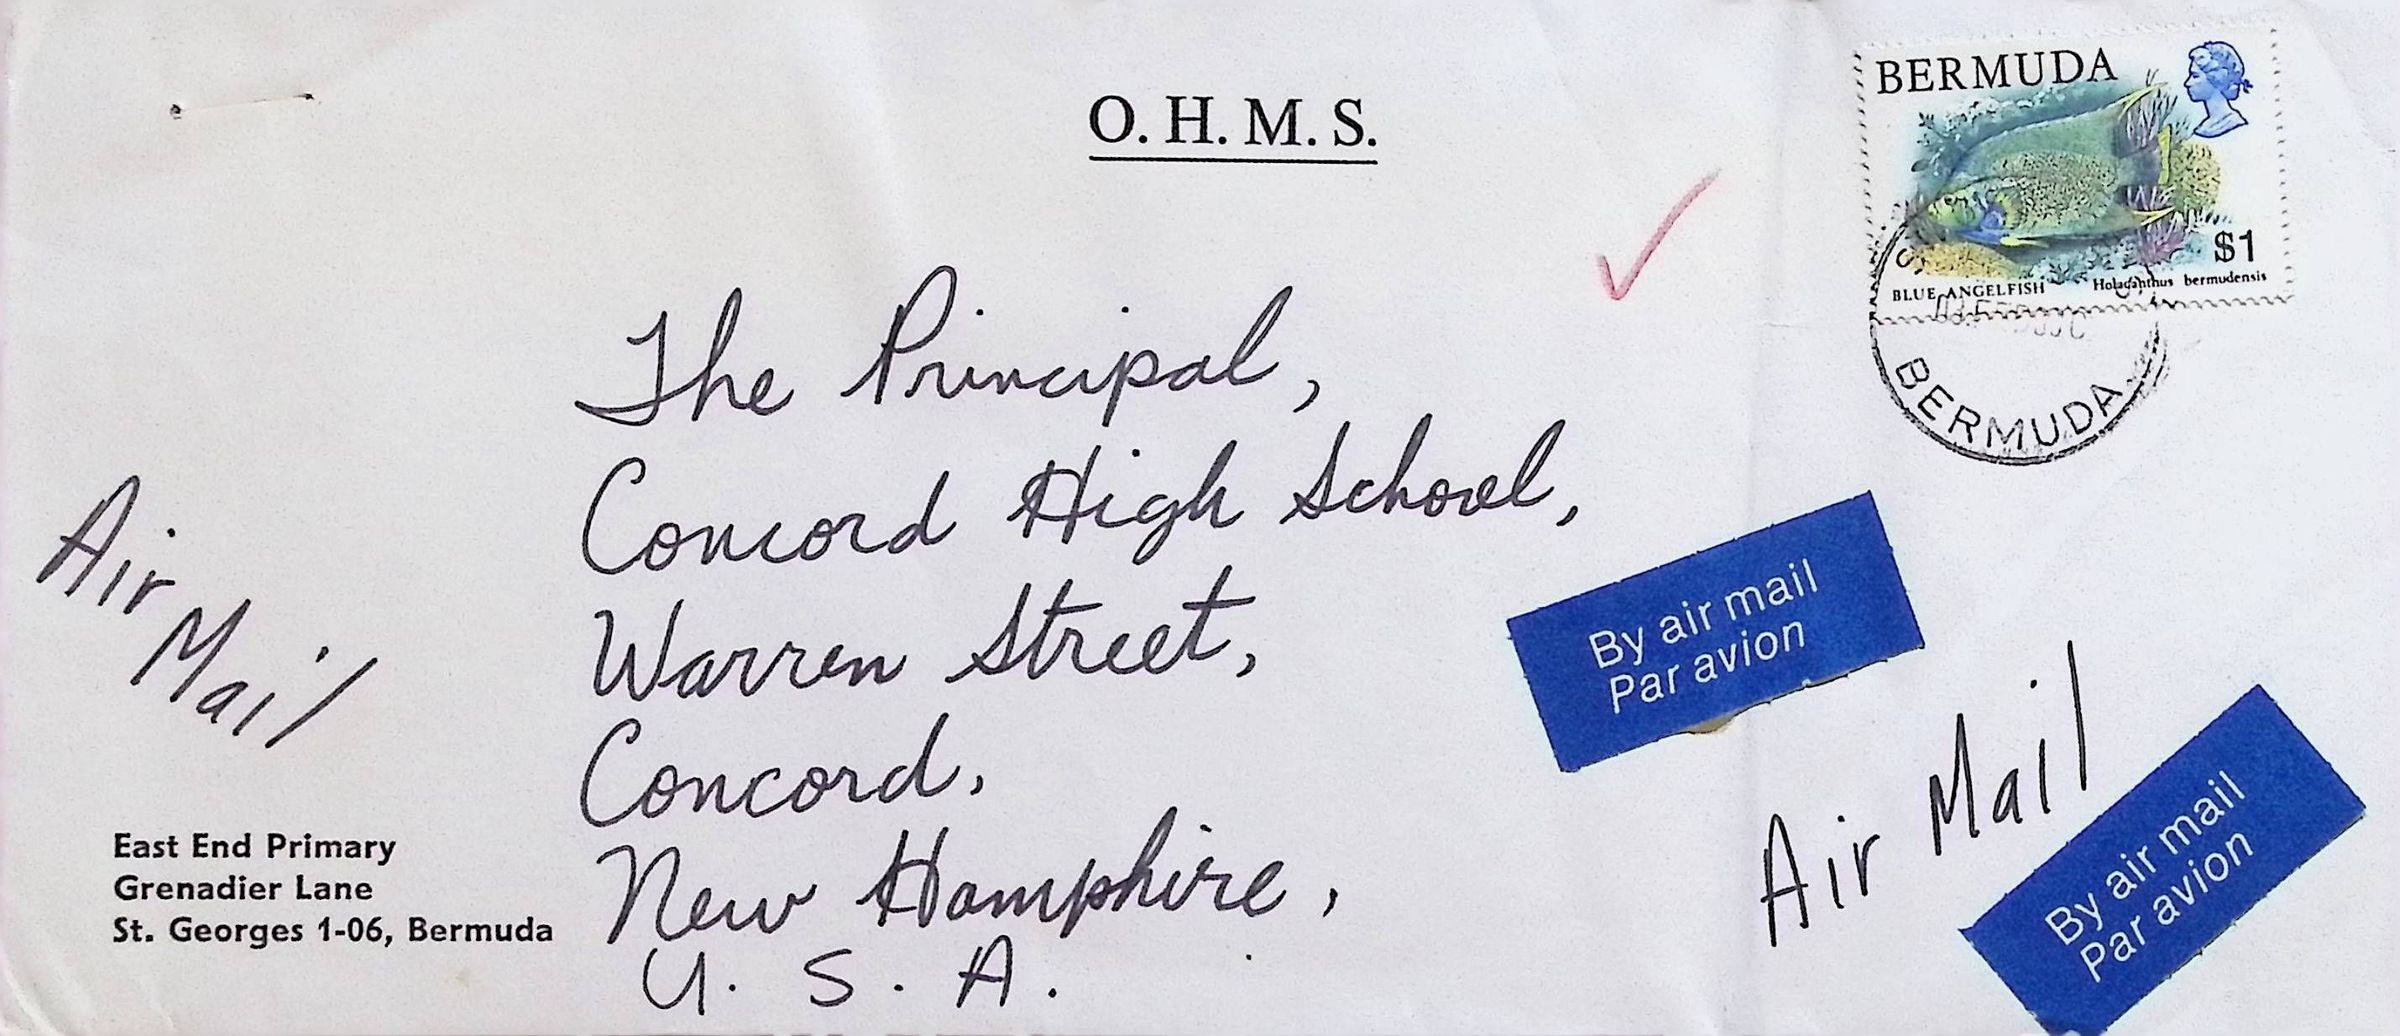 O. H. M. S.
BERMUDA
$1
BLUE ANGELFISH Holacanthus bermudensis
BERMUDA
The Principal,
Concord High School,
Warren Street,
Concord,
New Hamphire,
U. S. A.
Air
Mail
By air mail
Par avion
Air Mail
By air mail
Par avion
East End Primary
Grenadier Lane
St. Georges 1-06, Bermuda